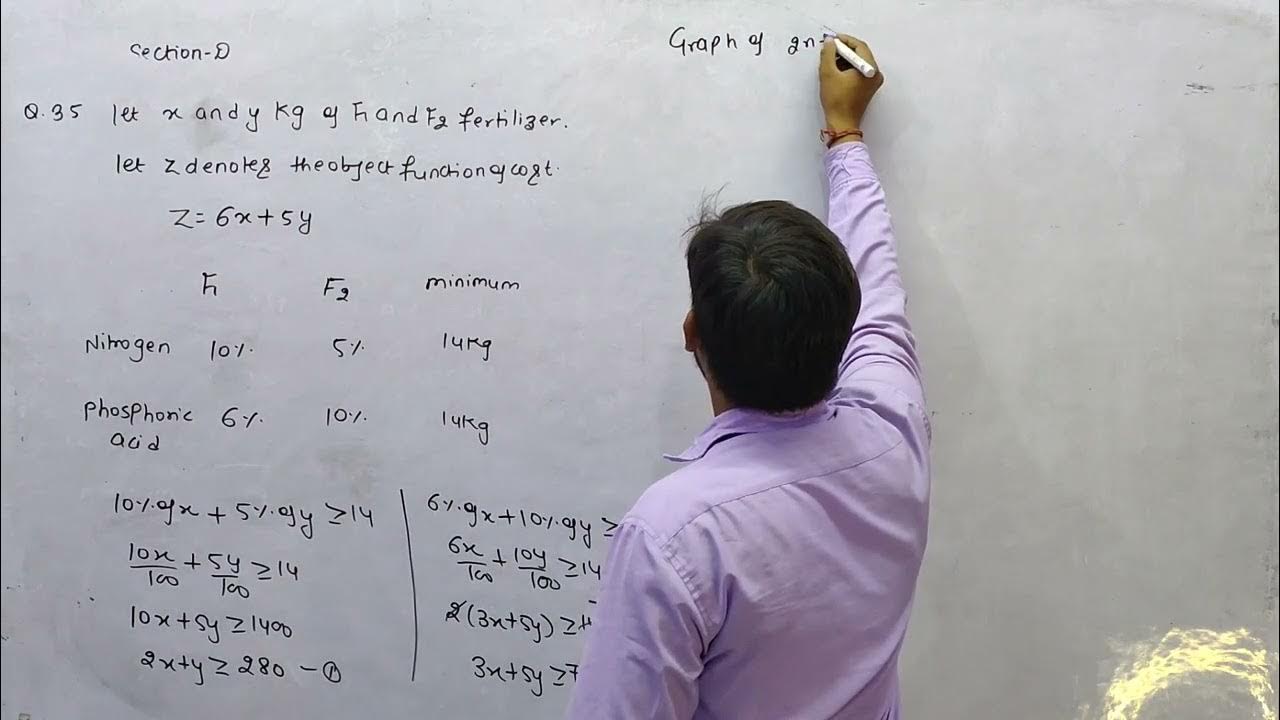 Section-D
Q.35 let x and y Kg of F1 and F2 fertilizer.
let Z denotes the object function of cost.
Z = 6x + 5y
F1 F2 minimum
Nitrogen 10% 5% 14Kg
Phosphoric 6% 10% 14Kg
acid
10% of x + 5% of y ≥ 14
10x/100 + 5y/100 ≥ 14
10x + 5y ≥ 1400
2x + y ≥ 280 – ①
6% of x + 10% of y ≥
6x/100 + 10y/100 ≥ 14
2(3x + 5y) ≥
3x + 5y ≥ 7
Graph of 2x